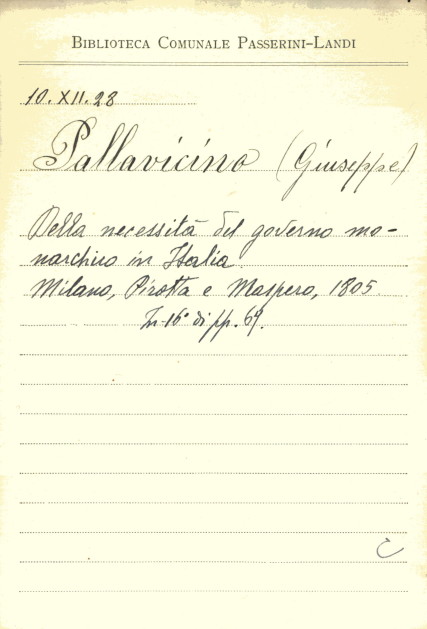 BIBLIOTECA COMUNALE PASSERINI-LANDI
10. XII. 28
Pallavicino (Giuseppe)
Della necessità del governo mo-
narchico in Italia
Milano, Pirotta e Maspero, 1805
In-16° di pp. 69.
C